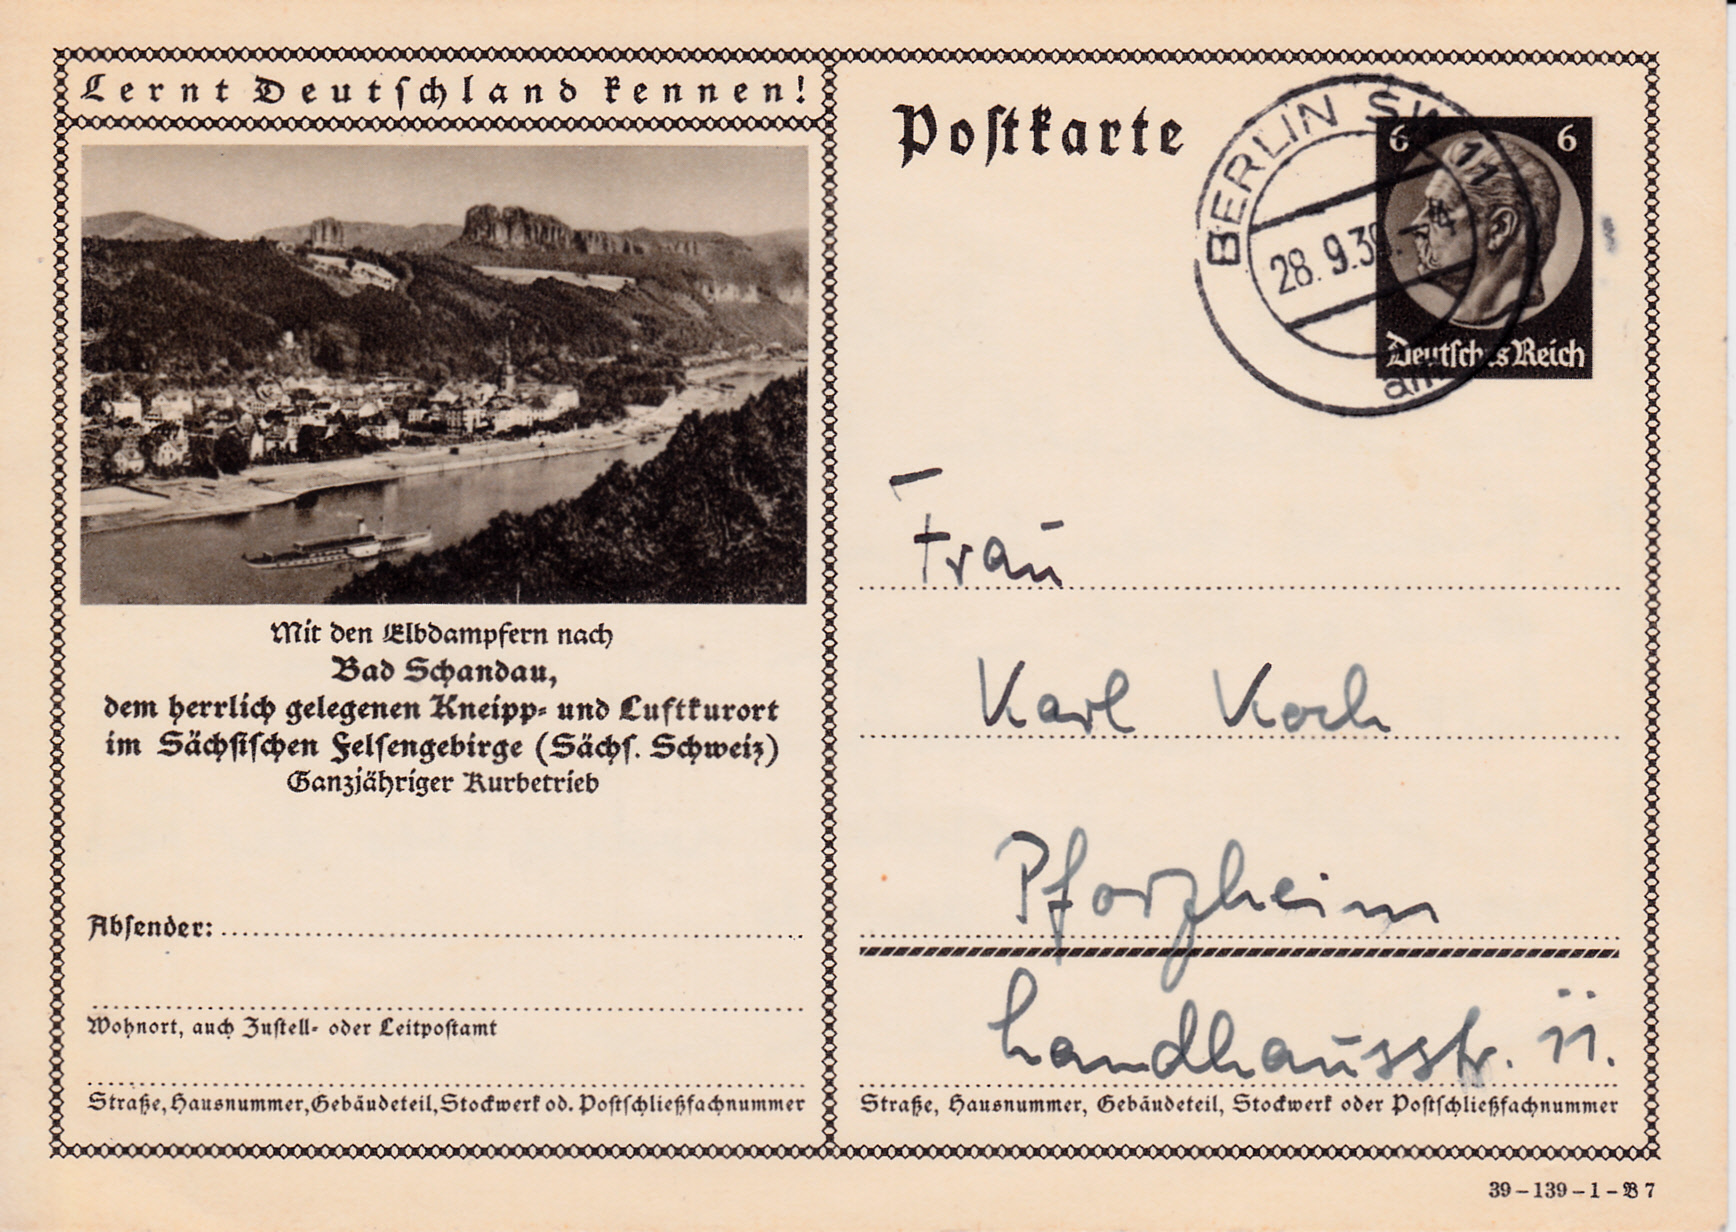 Lernt Deutschland kennen!
Mit den Elbdampfern nach
Bad Schandau,
dem herrlich gelegenen Kneipp- und Luftkurort
im Sächsischen Felsengebirge (Sächs. Schweiz)
Ganzjähriger Kurbetrieb
Absender:
Wohnort, auch Zustell- oder Leitpostamt
Straße, Hausnummer, Gebäudeteil, Stockwerk od. Postschließfachnummer
Postkarte
BERLIN SW 11
28.9.39
6 6
Deutsches Reich
Frau
Karl Koch
Pforzheim
Landhausstr. 11.
Straße, Hausnummer, Gebäudeteil, Stockwerk oder Postschließfachnummer
39 – 139 – 1 – B 7